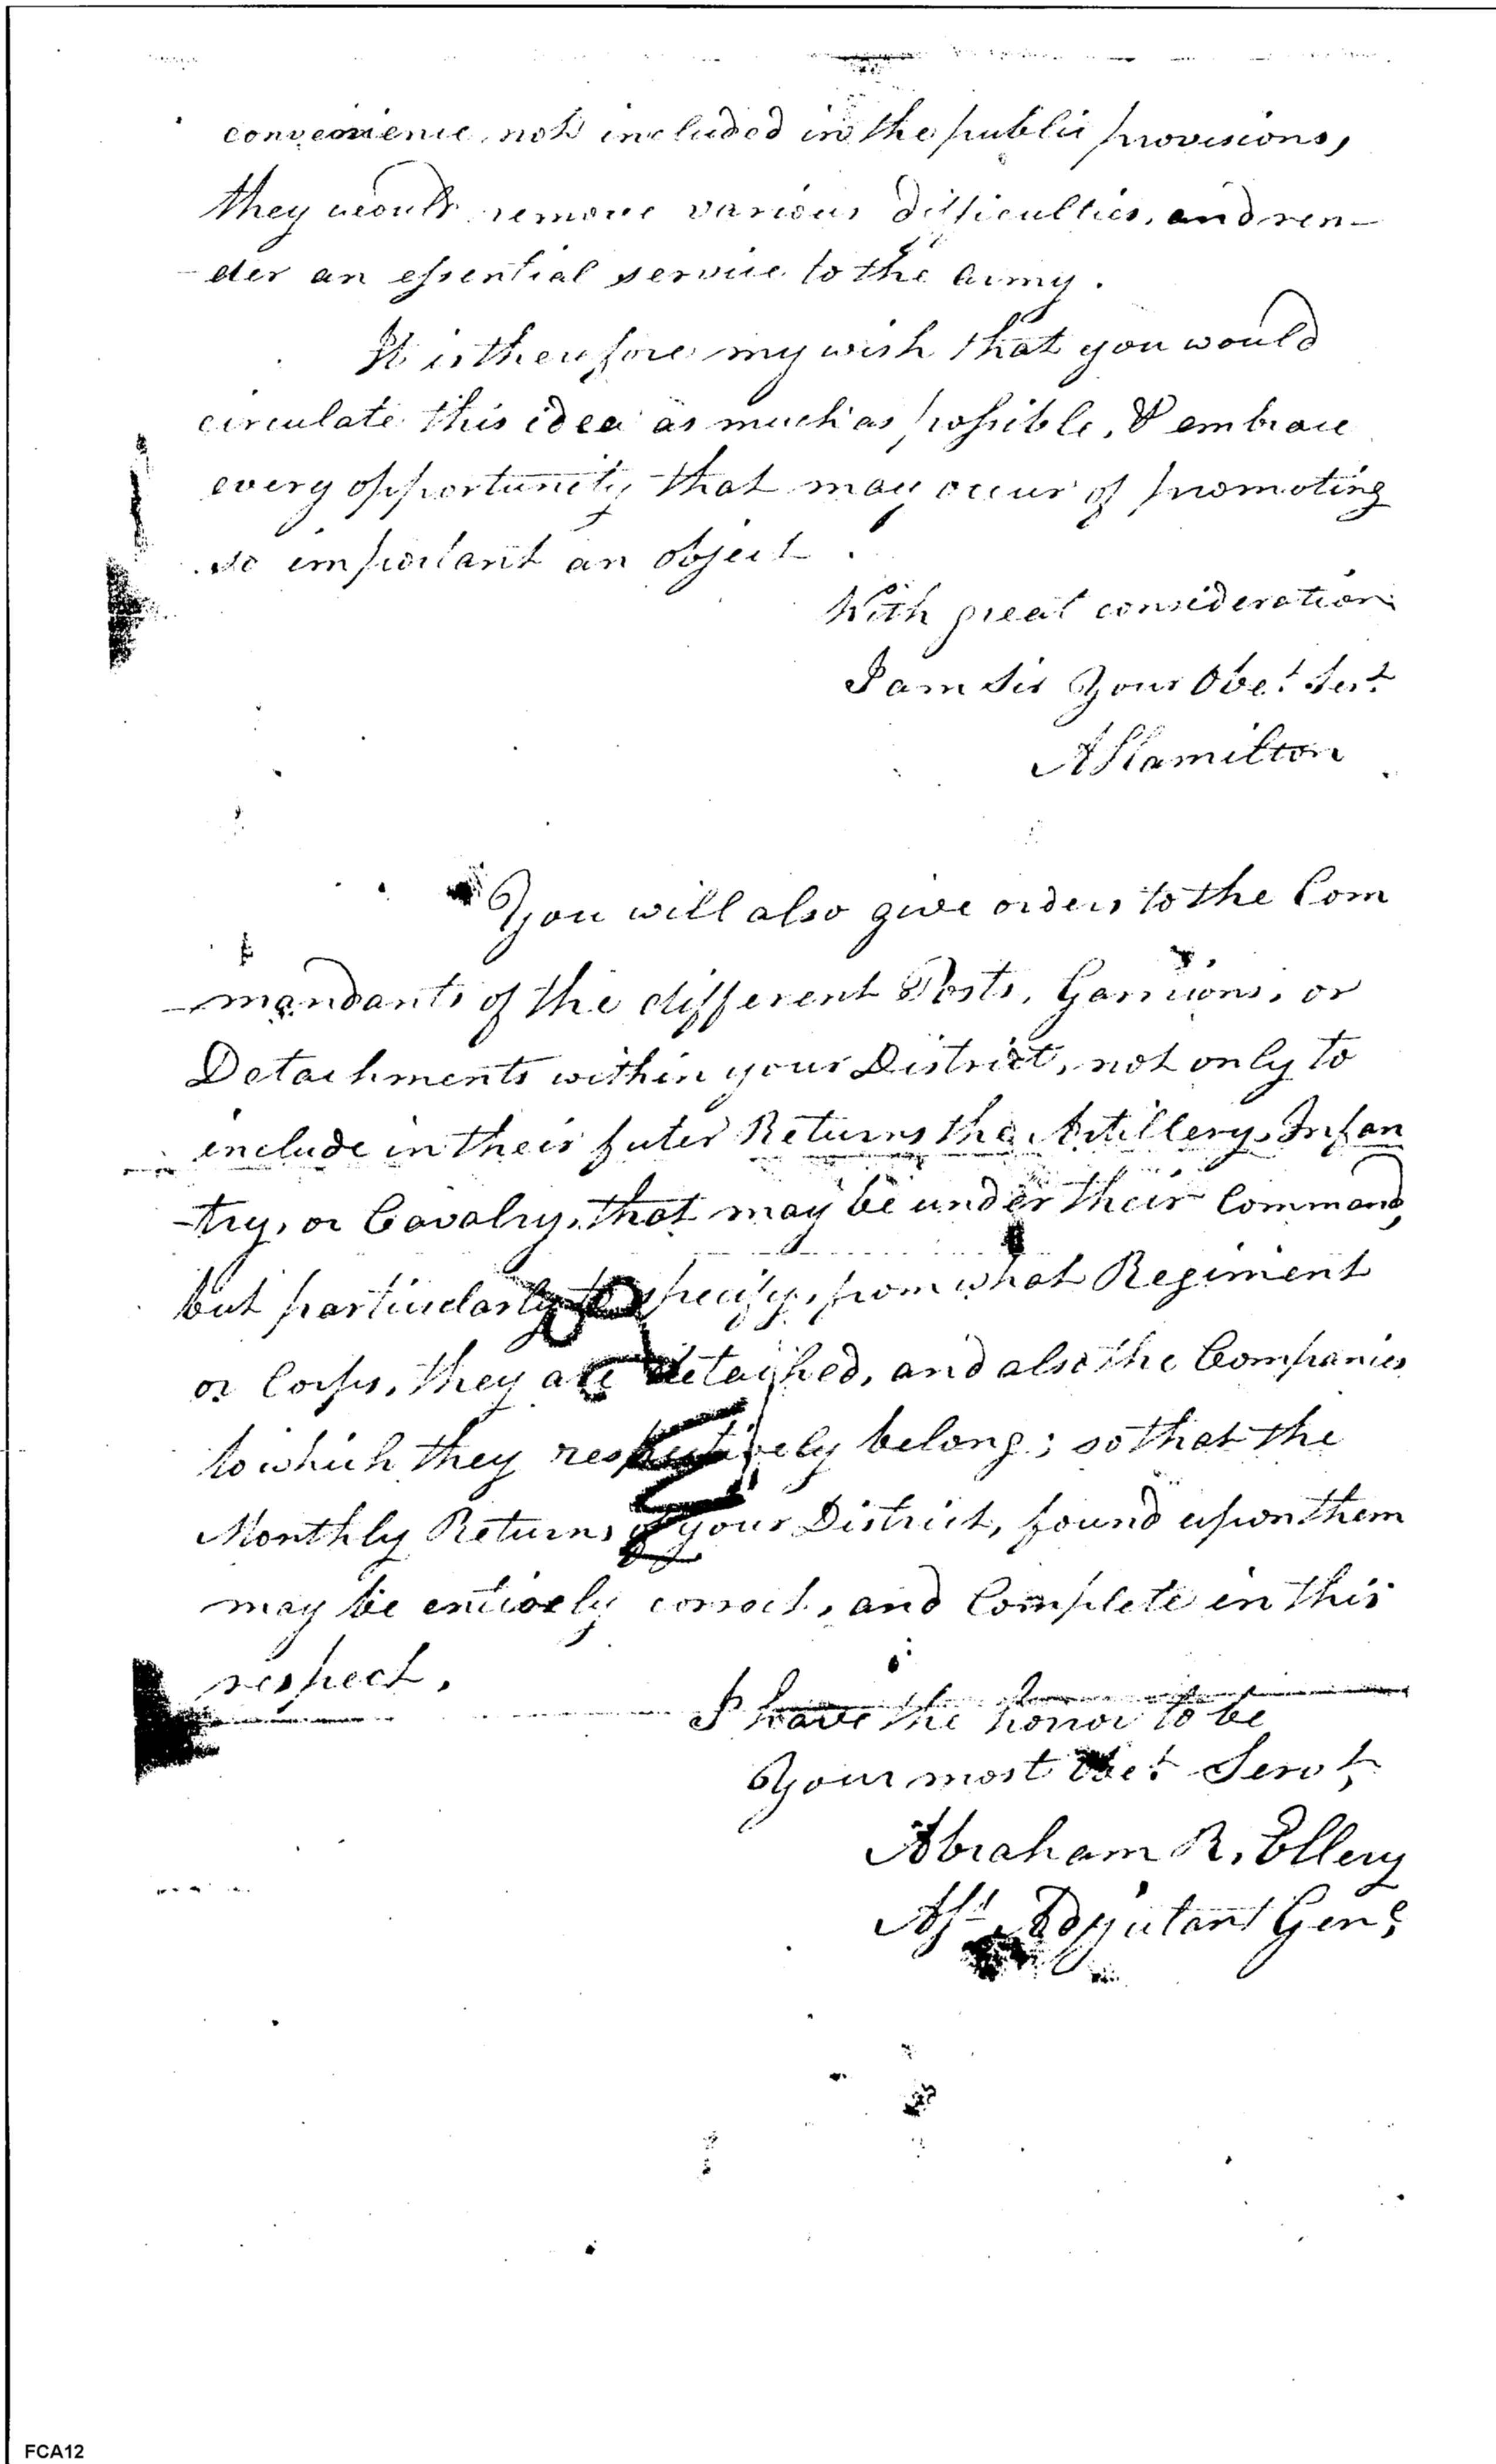 convenience not included in the public provisions,
they would remove various difficulties, and ren-
-der an essential service to the army.
It is therefore my wish that you would
circulate this idea as much as possible, & embrace
every opportunity that may occur of promoting
so important an object.
With great consideration
I am Sir Your Obet. Sert.
A Hamilton
You will also give orders to the Com
-mandants of the different Posts, Garrisons, or
Detachments within your District, not only to
include in their futer Returns the Artillery, Infan
-try, or Cavalry, that may be under their Command,
but particularly to specify, from what Regiment
or Corps, they are detached, and also the Companies
to which they respectively belong; so that the
Monthly Returns of your District, found upon them
may be entirely correct, and Complete in this
respect.
I have the honor to be
Your most Obet. Servt,
Abraham R. Ellery
Asst. Adjutant Genl.
FCA12